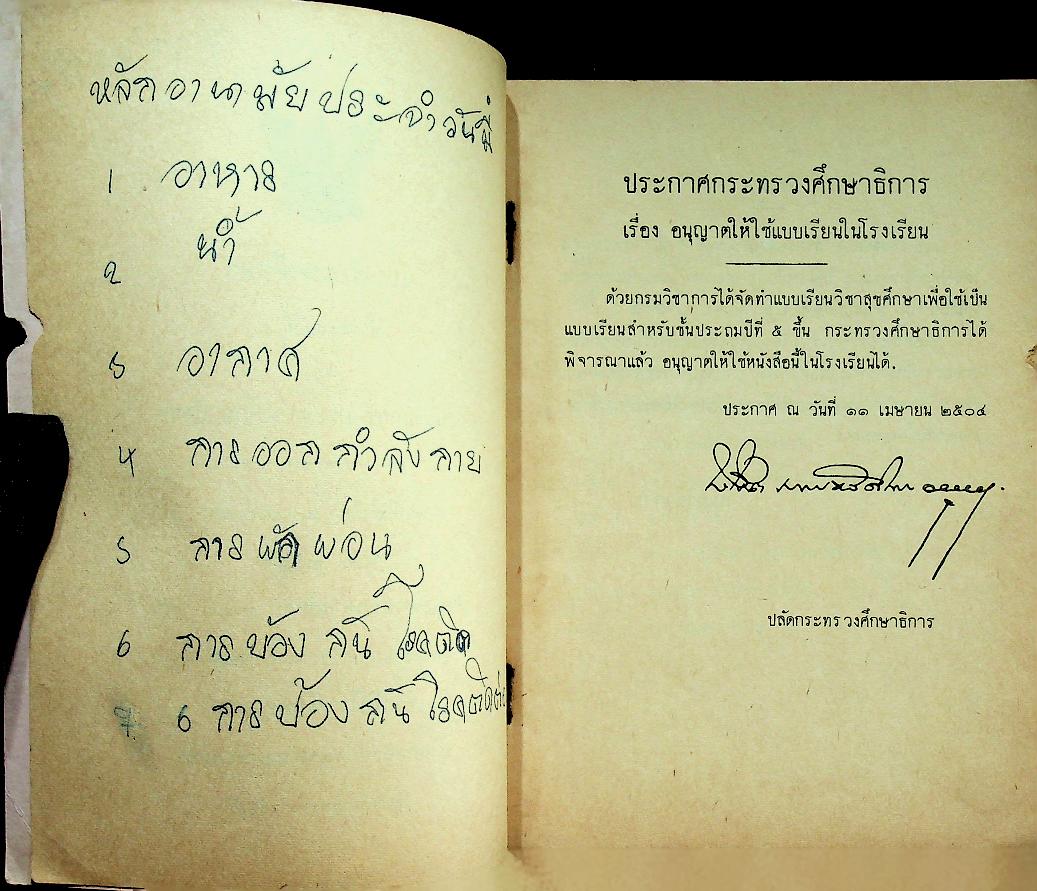 หลักอานามัยประจำวันมี
1 อาหาร
2 น้ำ
3 อากาศ
4 การออกกำลังกาย
5 การพักผ่อน
6 การป้องกันโรคติด
7 6 การป้องกันโรคติดต่อ
ประกาศกระทรวงศึกษาธิการ
เรื่อง อนุญาตให้ใช้แบบเรียนในโรงเรียน
ด้วยกรมวิชาการได้จัดทำแบบเรียนวิชาสุขศึกษาเพื่อใช้เป็น
แบบเรียนสำหรับชั้นประถมปีที่ ๕ ขึ้น กระทรวงศึกษาธิการได้
พิจารณาแล้ว อนุญาตให้ใช้หนังสือนี้ในโรงเรียนได้.
ประกาศ ณ วันที่ ๑๑ เมษายน ๒๕๐๔
ปลัดกระทรวงศึกษาธิการ